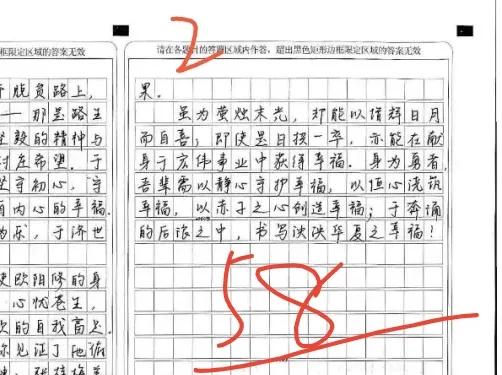 框限定区域的答案无效
脱贫路上,
——那是路生
坚毅的精神与
对左希望。于
坚守初心,守
有内心的幸福。
为乐,于济世
使欧阳修的身
心忧苍生,
次的自我高迈。
你见证了他缩
2
请在各题目的答题区域内作答,超出黑色矩形边框限定区域的答案无效
果。
虽为萤烛末光,却能以增辉日月
而自喜;即使是日拱一卒,亦能在献
身于宏伟事业中获得幸福。身为勇者,
吾辈需以静心守护幸福,以恒心浇筑
幸福,以赤子之心创造幸福;于奔涌
的后浪之中,书写泱泱华夏之幸福!
58